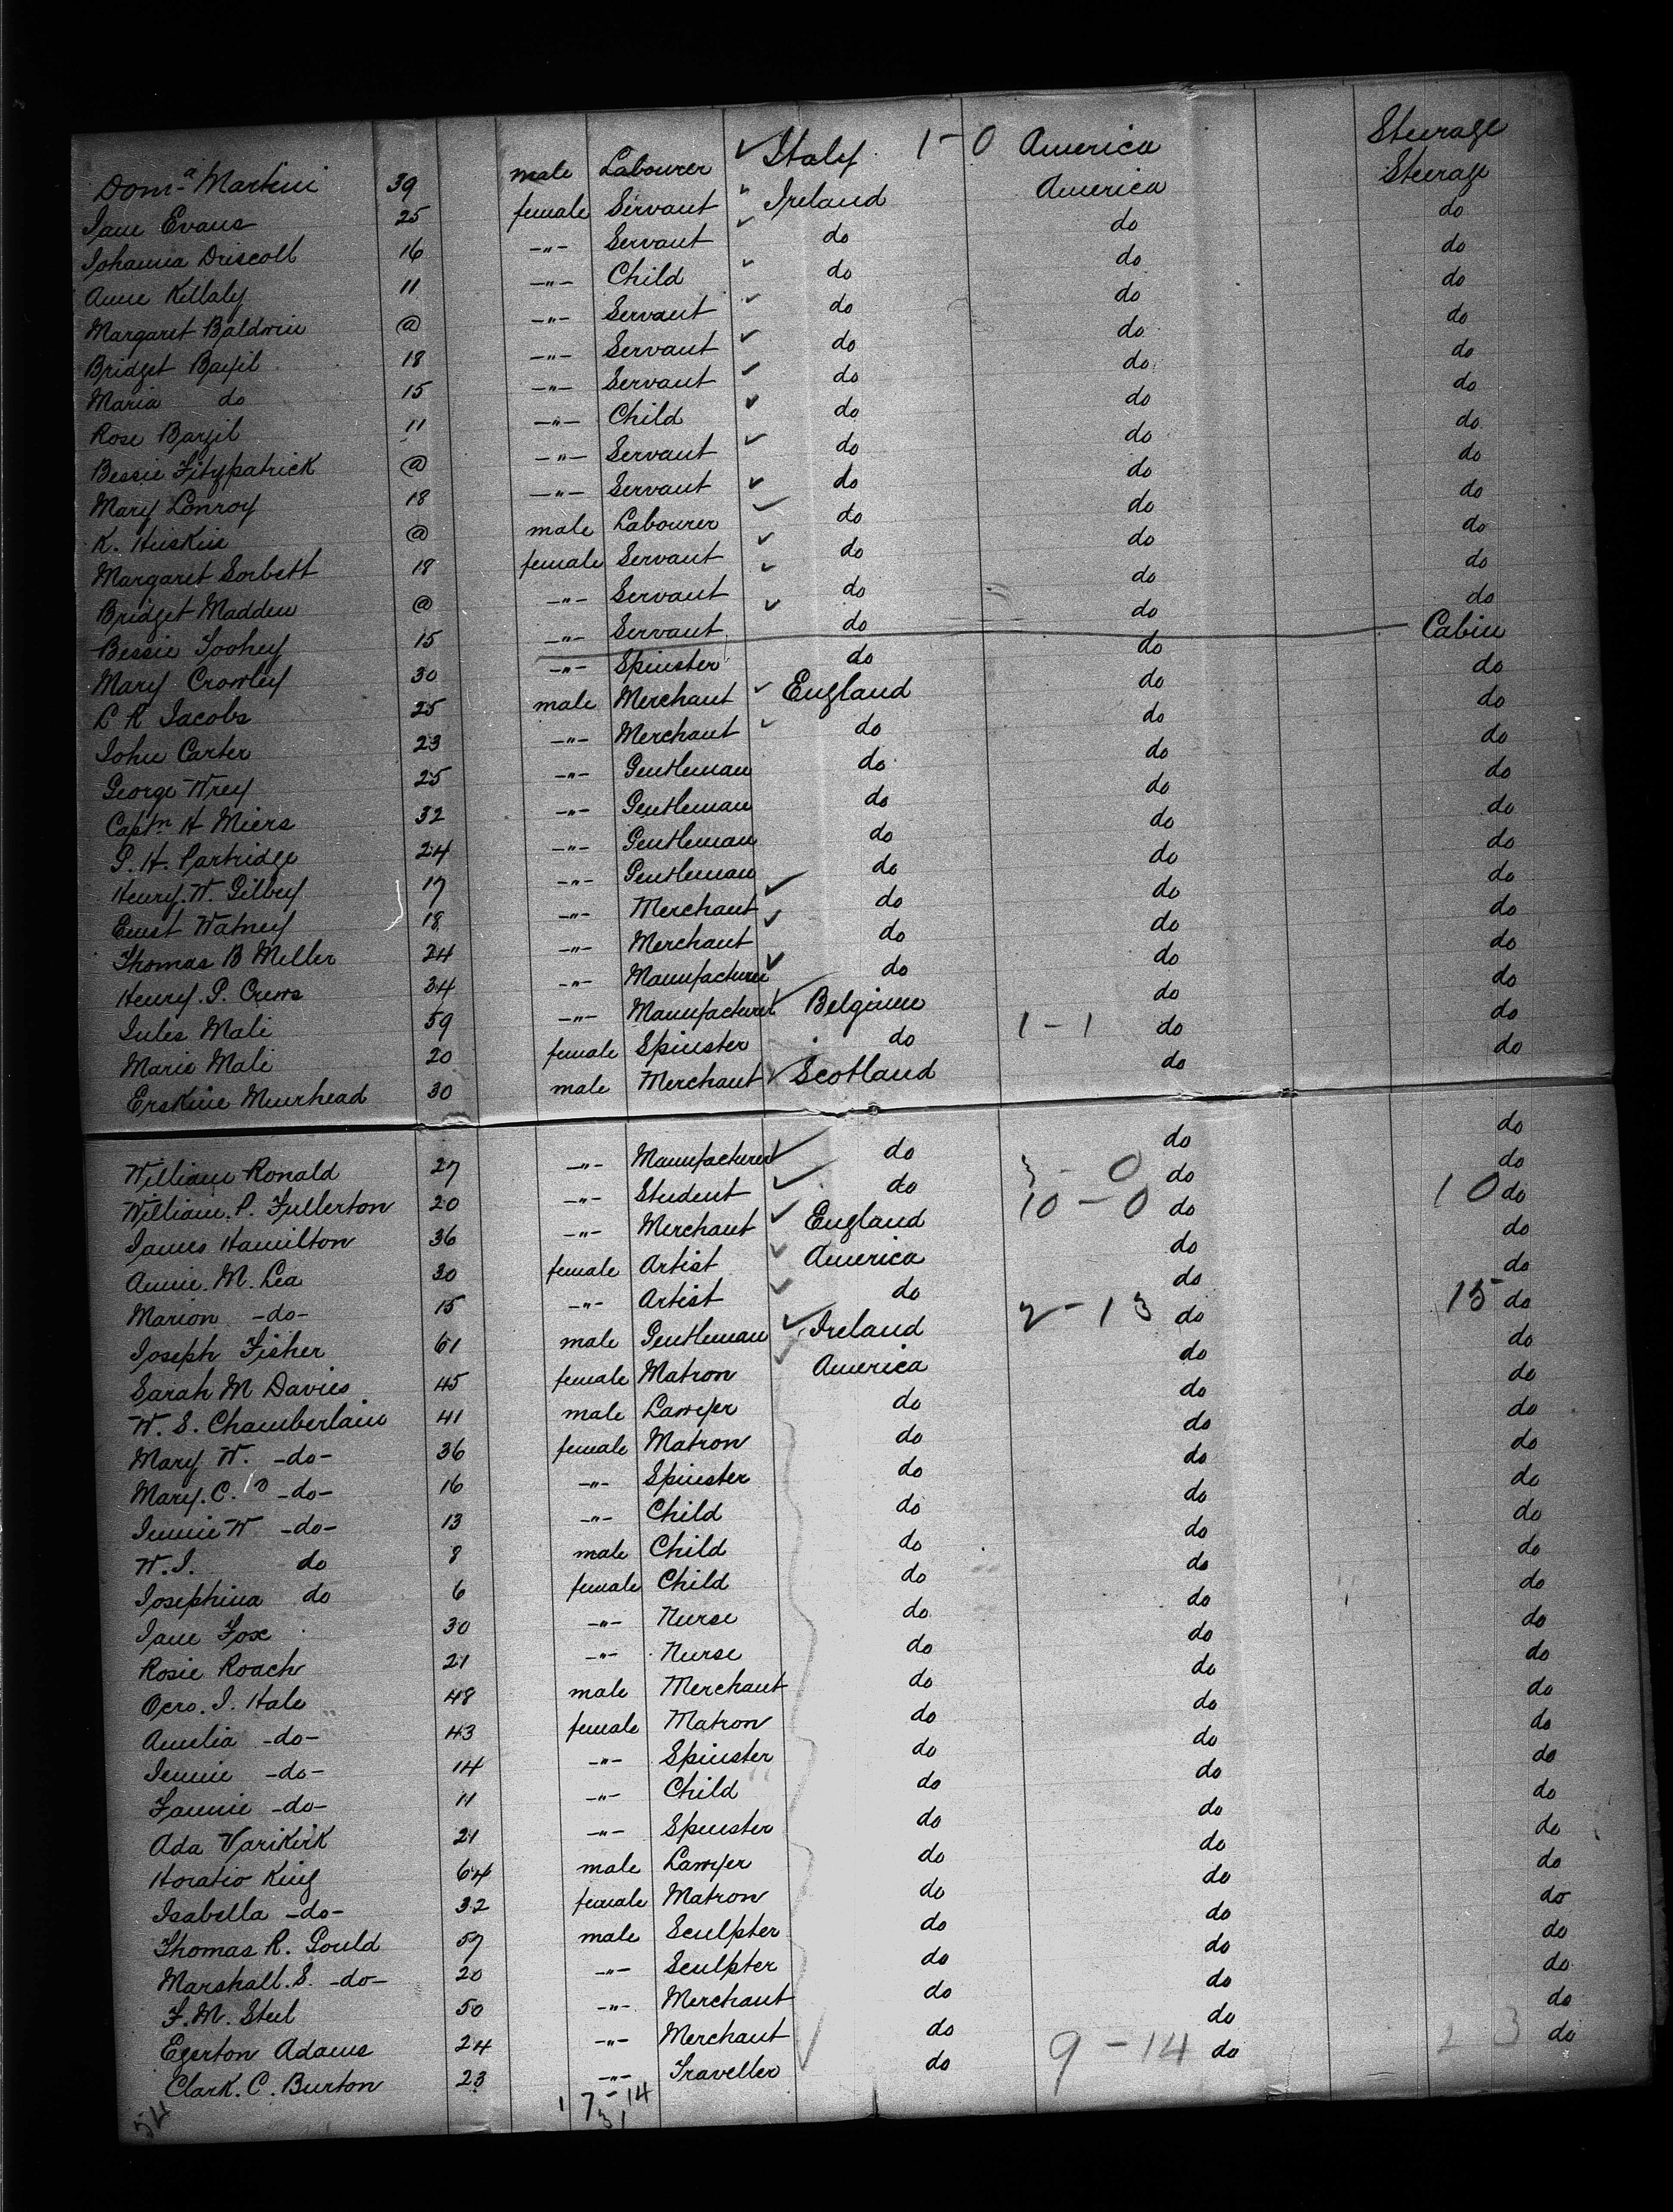 Dom-a Martini 39 male Labourer Italy 1-0 America Steerage
Jane Evans 25 female Servant Ireland America Steerage
Johanna Driscoll 16 -"- Servant do do do
Anne Killaly 11 -"- Child do do do
Margaret Baldwin @ -"- Servant do do do
Bridget 18 -"- Servant do do do
Maria do 15 -"- Servant do do do
Rose 11 -"- Child do do do
Bessie Fitzpatrick @ -"- Servant do do do
Mary Conroy 18 -"- Servant do do do
K. @ male Labourer do do do
Margaret 18 female Servant do do do
Bridget Madden @ -"- Servant do do do
Bessie Toohey 15 -"- Servant do do do
Mary Crowley 30 -"- Spinster do do Cabin
L R Jacobs 25 male Merchant England do do
John Carter 23 -"- Merchant do do do
George Wrey 25 -"- Gentleman do do do
Captn H Miers 32 -"- Gentleman do do do
P. H. Partridge 24 -"- Gentleman do do do
Henry. W. Gilbey 17 -"- Gentleman do do do
Ernst Watney 18 -"- Merchant do do do
Thomas B Meller 24 -"- Merchant do do do
Henry. P. Crews 34 -"- Manufacturer do do do
Jules Mali 59 -"- Manufacturer Belgium do do
Marie Mali 20 female Spinster do 1-1 do do
Erskine Muirhead 30 male Merchant Scotland do do
William Ronald 27 -"- Manufacturer do do do
William. P. Fullerton 20 -"- Student do 3-0 do do
James Hamilton 36 -"- Merchant England 10-0 do 10 do
Annie. M. Lea 30 female Artist America do do
Marion -do- 15 -"- Artist do do do
Joseph Fisher 61 male Gentleman Ireland 2-13 do 15 do
Sarah M Davies 45 female Matron America do do
W. S. Chamberlain 41 male Lawyer do do do
Mary W. -do- 36 female Matron do do do
Mary. C. -do- 16 -"- Spinster do do do
Jennie W -do- 13 -"- Child do do do
W. J. do 8 male Child do do do
Josephina do 6 female Child do do do
Jane Fox 30 -"- Nurse do do do
Rosie Roach 21 -"- Nurse do do do
Gero. J. Hale 48 male Merchant do do do
Amelia -do- 43 female Matron do do do
Jennie -do- 14 -"- Spinster do do do
Fannie -do- 11 -"- Child do do do
Ada Varikirk 21 -"- Spinster do do do
Horatio King 64 male Lawyer do do do
Isabella -do- 32 female Matron do do do
Thomas R. Gould 57 male Sculpter do do do
Marshall. S. -do- 20 -"- Sculpter do do do
F. M. Steel 50 -"- Merchant do do do
Egerton Adams 24 -"- Merchant do do do
Clark. C. Burton 23 -"- Traveller do 9-14 do 23 do
17-14
31
54